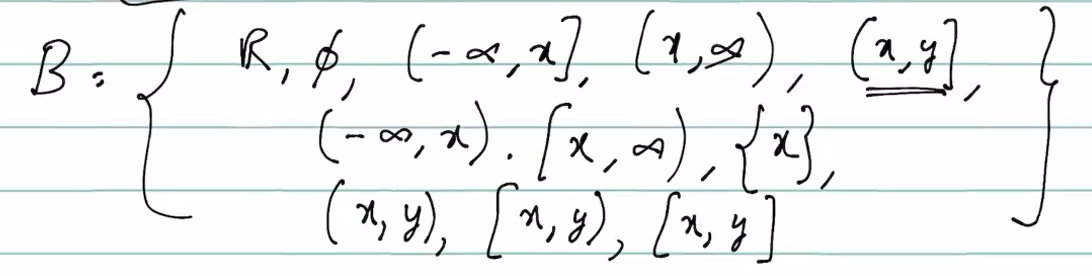 B = { ℝ, ϕ, (-∞, x], (x, ∞), (x, y],
(-∞, x). [x, ∞), {x},
(x, y), [x, y), [x, y] }